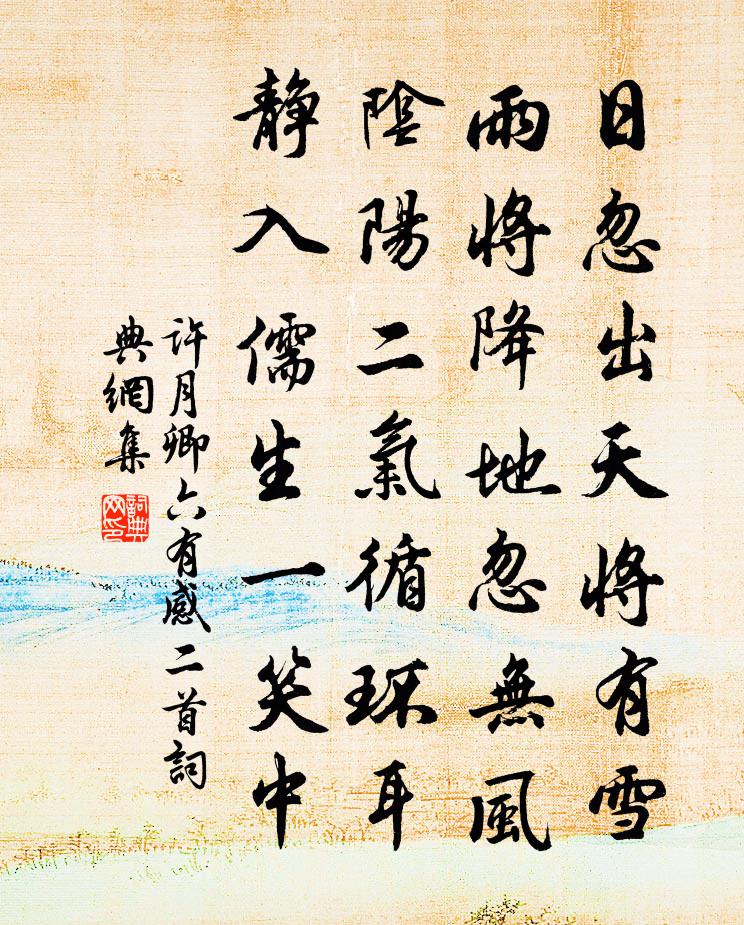 日忽出天將有雪
雨將降地忽無風
陰陽二氣循环耳
靜入儒生一笑中
許月卿六有感二首詞
典網集
詞典
网印